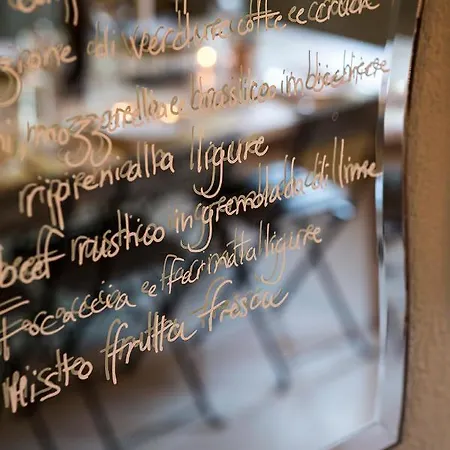 di verdure cotte e crude
mozzarella e basilico in bicchiere
ripieni alla ligure
beef rustico in gremolada di lime
Focaccia e farinata ligure
misto frutta fresca